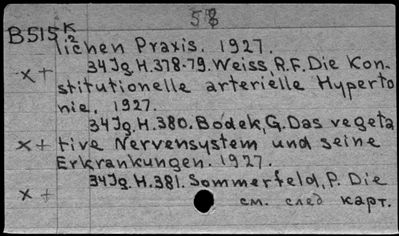 58
B515 K2
lichen Praxis. 1927.
34Jg.H.378-79. Weiss, R.F. Die Kon-
x+ stitutionelle arterielle Hyperto
nie. 1927.
34Jg.H.380. Bodek, G. Das vegeta
x+ tive Nervensystem und seine
Erkrankungen. 1927.
34Jg.H.381. Sommerfeld, P. Die
x+ см. след карт.